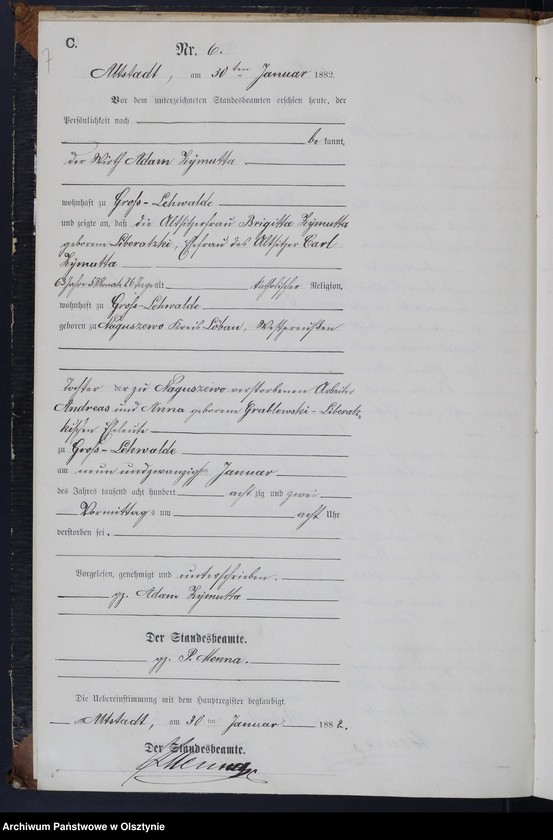 C.
7
Nr. 6.
Altstadt, am 30ten Januar 1882.
Vor dem unterzeichneten Standesbeamten erschien heute, der
Persönlichkeit nach
be kannt,
der Wirth Adam Zÿmutta
wohnhaft zu Groß-Lehwalde
und zeigte an, daß die Altsitzerfrau Brigitta Zÿmutta
geborene Liberatzki, Ehefrau des Altsitzer Carl
Zÿmutta
63 Jahre 5 Monate 26 Tage alt katholischer Religion,
wohnhaft zu Groß-Lehwalde
geboren zu Naguszewo Kreis Löbau, Westpreußen
Tochter der zu Naguszewo verstorbenen Arbeiter
Andreas und Anna geborene Grablewski-Liberatz-
kischen Eheleute
zu Groß-Lehwalde
am neun und zwanzigsten Januar
des Jahres tausend acht hundert acht zig und zwei
Vormittags um acht Uhr
verstorben sei.
Vorgelesen, genehmigt und unterschrieben.
gz. Adam Zÿmutta
Der Standesbeamte.
gz. P. Menna.
Die Uebereinstimmung mit dem Hauptregister beglaubigt.
Altstadt, am 30ten Januar 1882.
Der Standesbeamte.
Menna
Archiwum Państwowe w Olsztynie